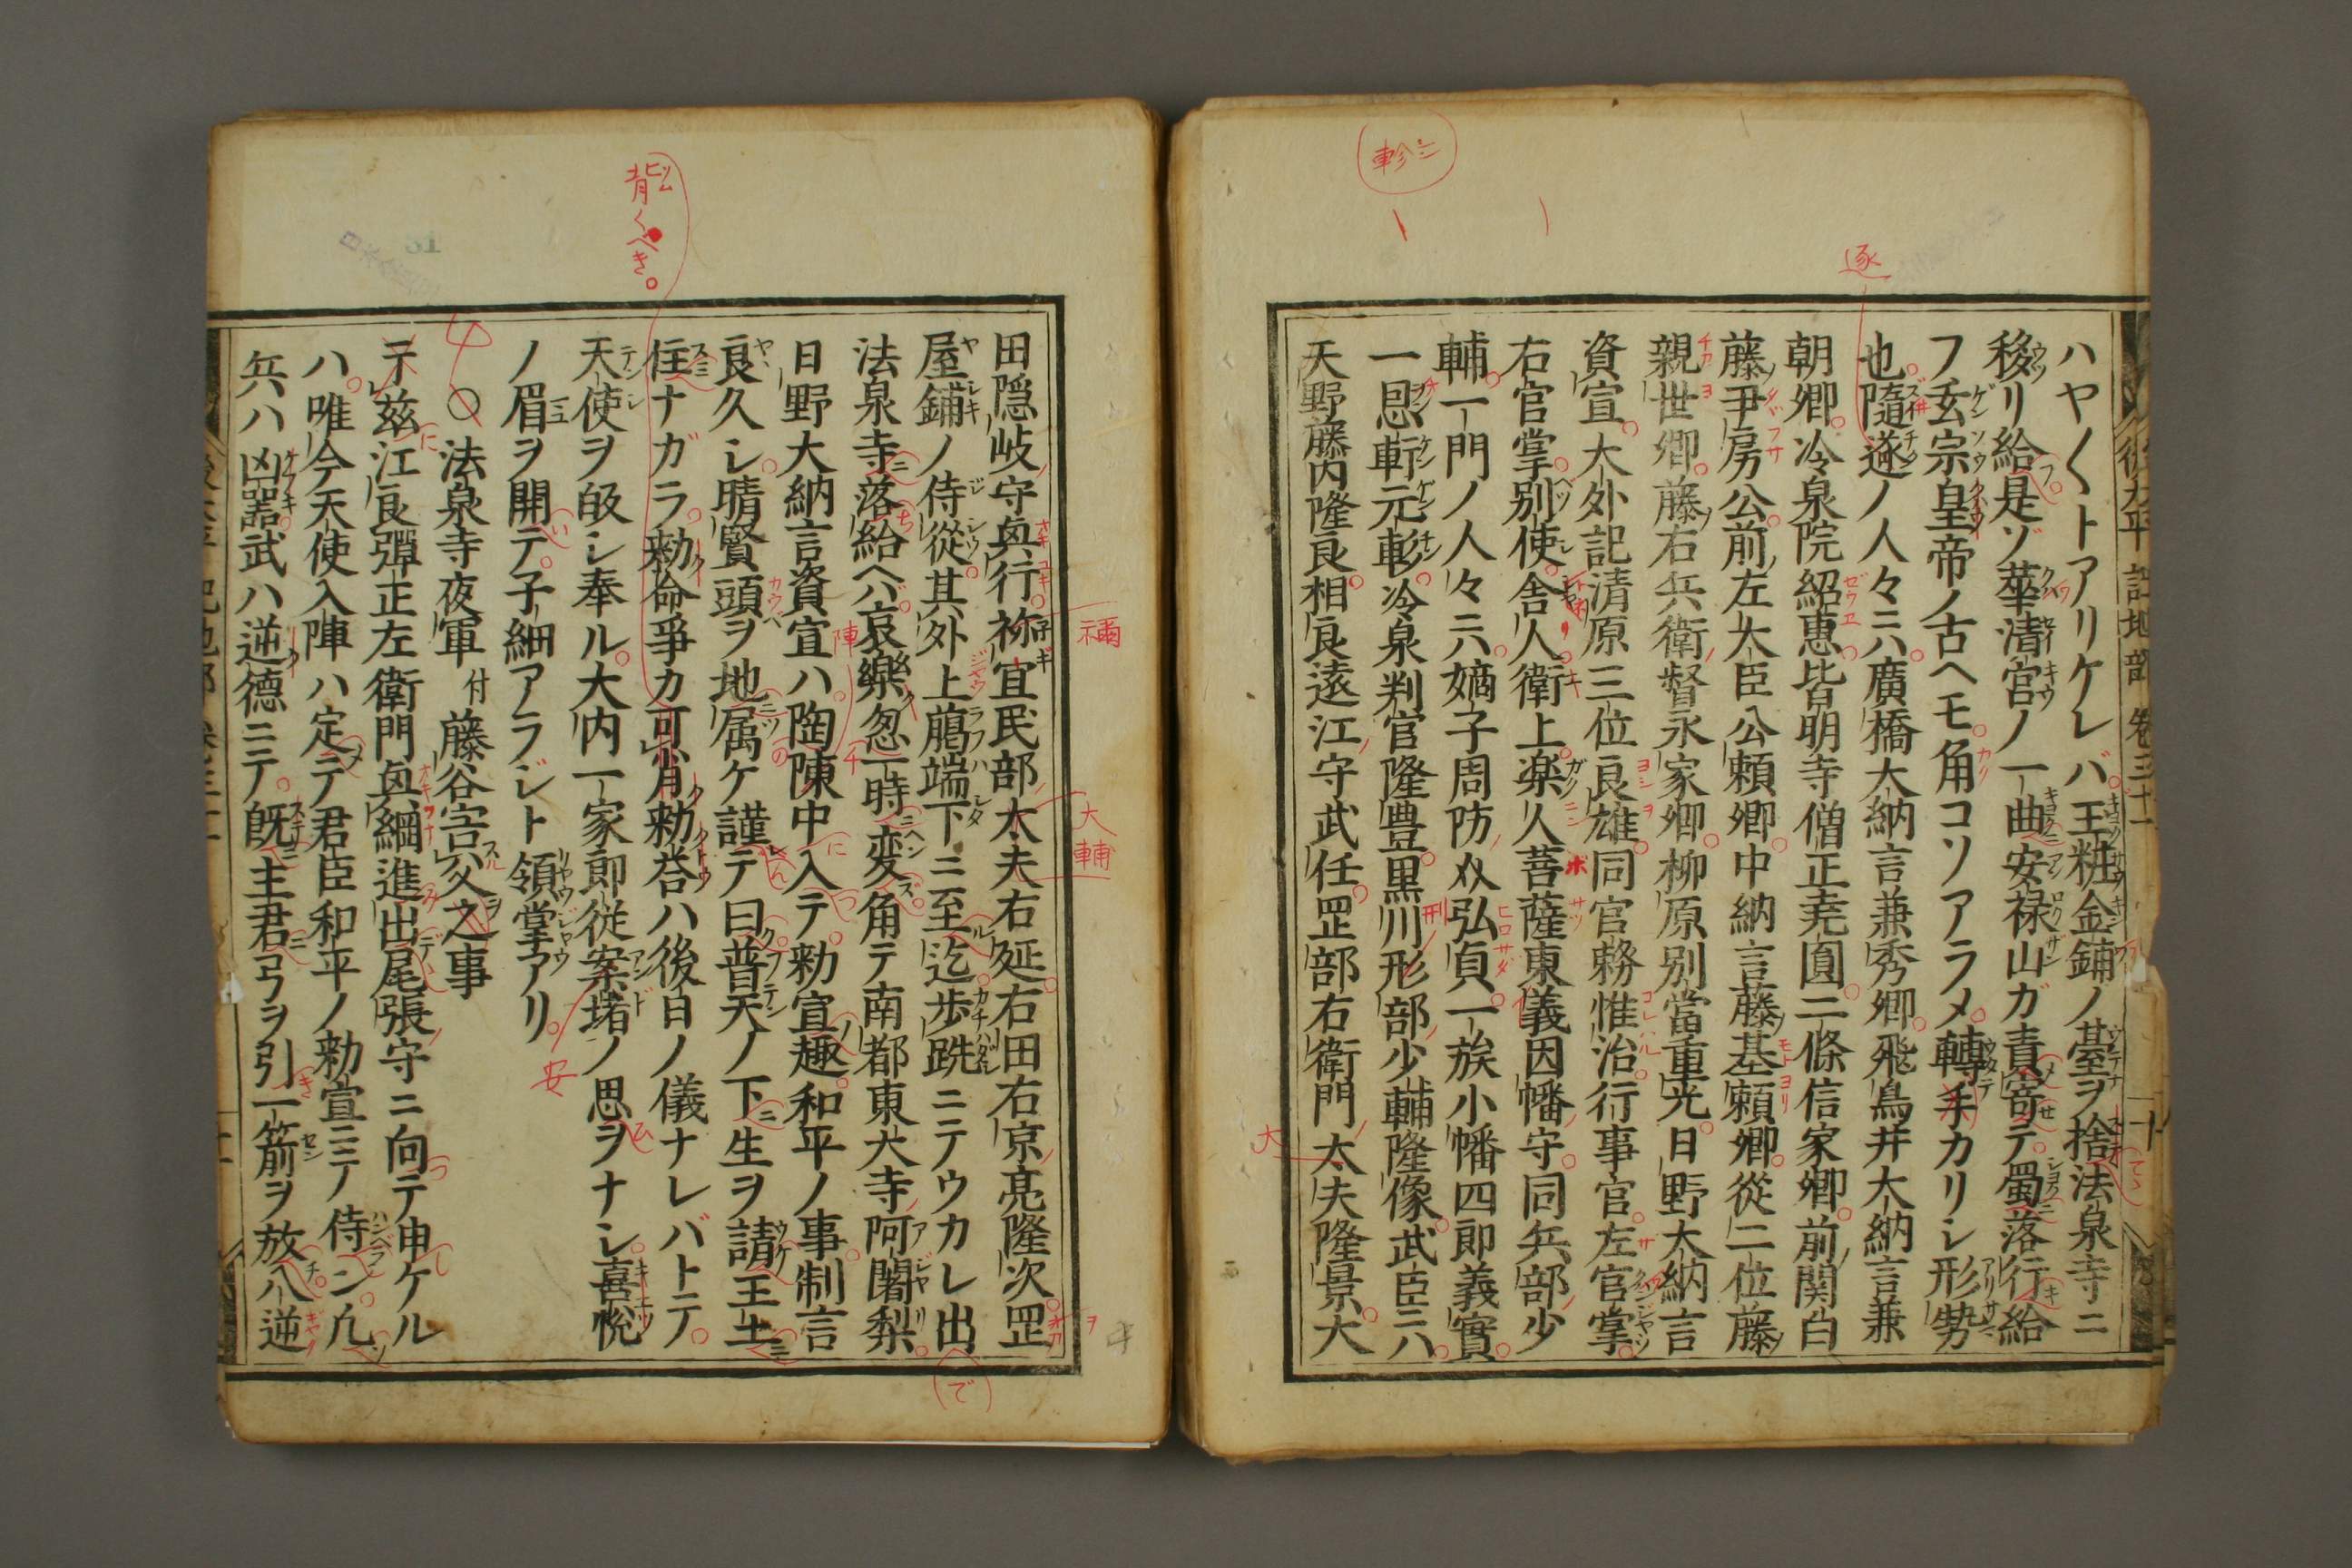 ハヤ〱トアリケレバ王粧金鋪ノ臺ヲ捨法泉寺ニ
移リ給フ是ゾ華清宮ノ一曲安禄山ガ責寄テ蜀ニ落行給
フ玄宗皇帝ノ古ヘモ角コソアラメ轉手カリシ形勢
也隨逐ノ人々ニハ廣橋大納言兼秀卿飛鳥井大納言兼
朝卿冷泉院紹惠皆明寺僧正尭圓二條信家卿前関白
藤尹房公前左大臣公頼卿中納言藤基頼卿從二位藤
親世卿藤右兵衛督永家卿柳原別當重光日野大納言
資宣大外記清原三位良雄同官務惟治行事官左官掌
右官掌別使舎人衛上楽人菩薩東儀因幡守同兵部少
輔一門ノ人々ニハ嫡子周防介弘貞一族小幡四郎義實
一忍軒元軫冷泉判官隆豊黒川形部少輔隆像武臣ニハ
天野藤内隆良相良遠江守武任罡部右衛門太夫隆景大
田隠岐守興行祢宜民部太夫右延右田右京亮隆次罡
屋鋪ノ侍從其外上﨟端下ニ至ル迄歩跣ニテウカレ出
法泉寺ニ落給ヘバ哀樂忽一時ニ変ズ角テ南都東大寺阿闍梨
日野大納言資宣ハ陶陳中入テ勅宣ノ趣和平ノ事制言
良久シ晴賢頭ヲ地ニ属ケ謹テ曰普天ノ下ニ生ヲ請王土ニ
住ナガラ勅命爭カ可背勅答ハ後日ノ儀ナレバトテ
天使ヲ皈シ奉ル大内一家郎従案堵ノ思ヲナシ喜悦
ノ眉ヲ開テ子細アラジト領掌アリ
○法泉寺夜軍付藤谷害父之事
于茲江良彈正左衛門興綱進出尾張守ニ向テ申ケル
ハ唯今天使入陣ハ定テ君臣和平ノ勅宣ニテ侍ン凡
兵ハ凶器武ハ逆德ニテ既主君ニ弓ヲ引一箭ヲ放八逆
軫
逐
背くべき。
禰
大輔
陣
安
大